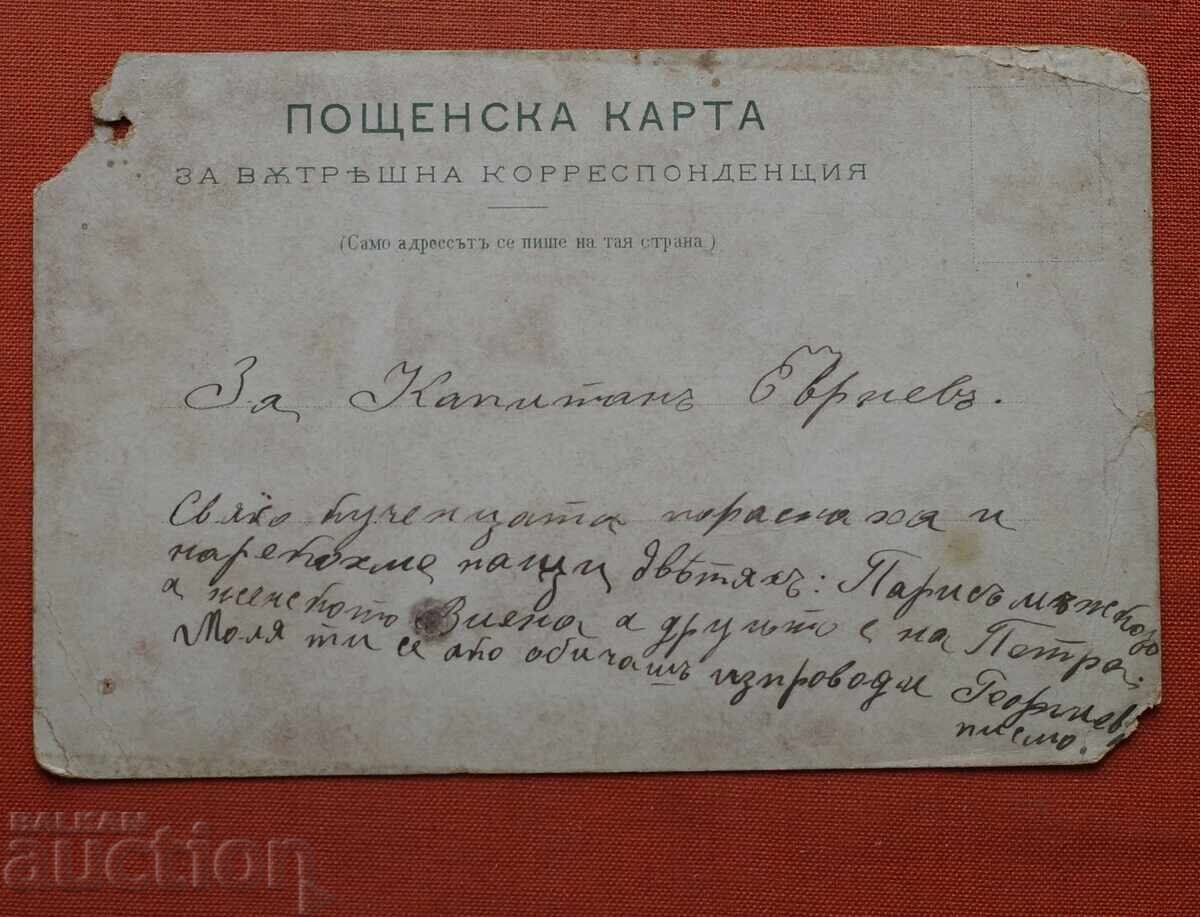 ПОЩЕНСКА КАРТА
ЗА ВѪТРѢШНА КОРРЕСПОНДЕНЦИЯ
(Само адрессътъ се пише на тая страна.)
За Капитанъ
Свяко кученцата пораснаха и
нарекохме наши двѣтяхъ: Парисъ мѫжкото
а женското Виена а другито е на Петра.
Моля ти се ако обичашъ изпроводи
писмо.
BALKAN
auction